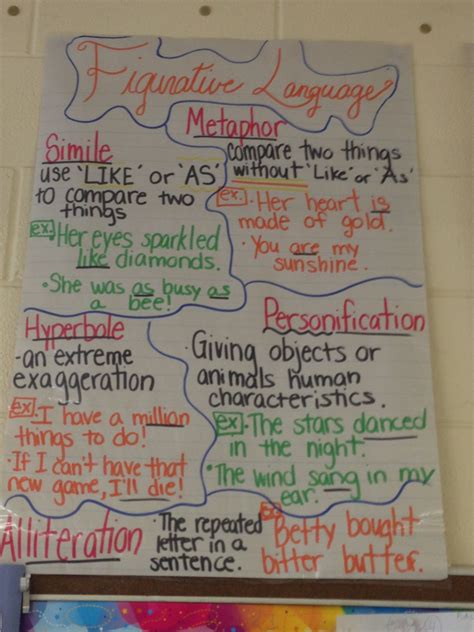 Figurative Language
Simile
use 'LIKE' or 'AS'
to compare two
things
ex. Her eyes sparkled
like diamonds.
• She was as busy as
a bee!
Metaphor
compare two things
without 'Like' or 'As'
ex. Her heart is
made of gold.
• You are my
sunshine.
Hyperbole
-an extreme
exaggeration
ex. I have a million
things to do!
• If I can't have that
new game, I'll die!
Personification
• Giving objects or
animals human
characteristics.
ex. The stars danced
in the night.
• The wind sang in my
ear.
Alliteration
• The repeated
letter in a
sentence.
Ex. Betty bought
bitter butter.